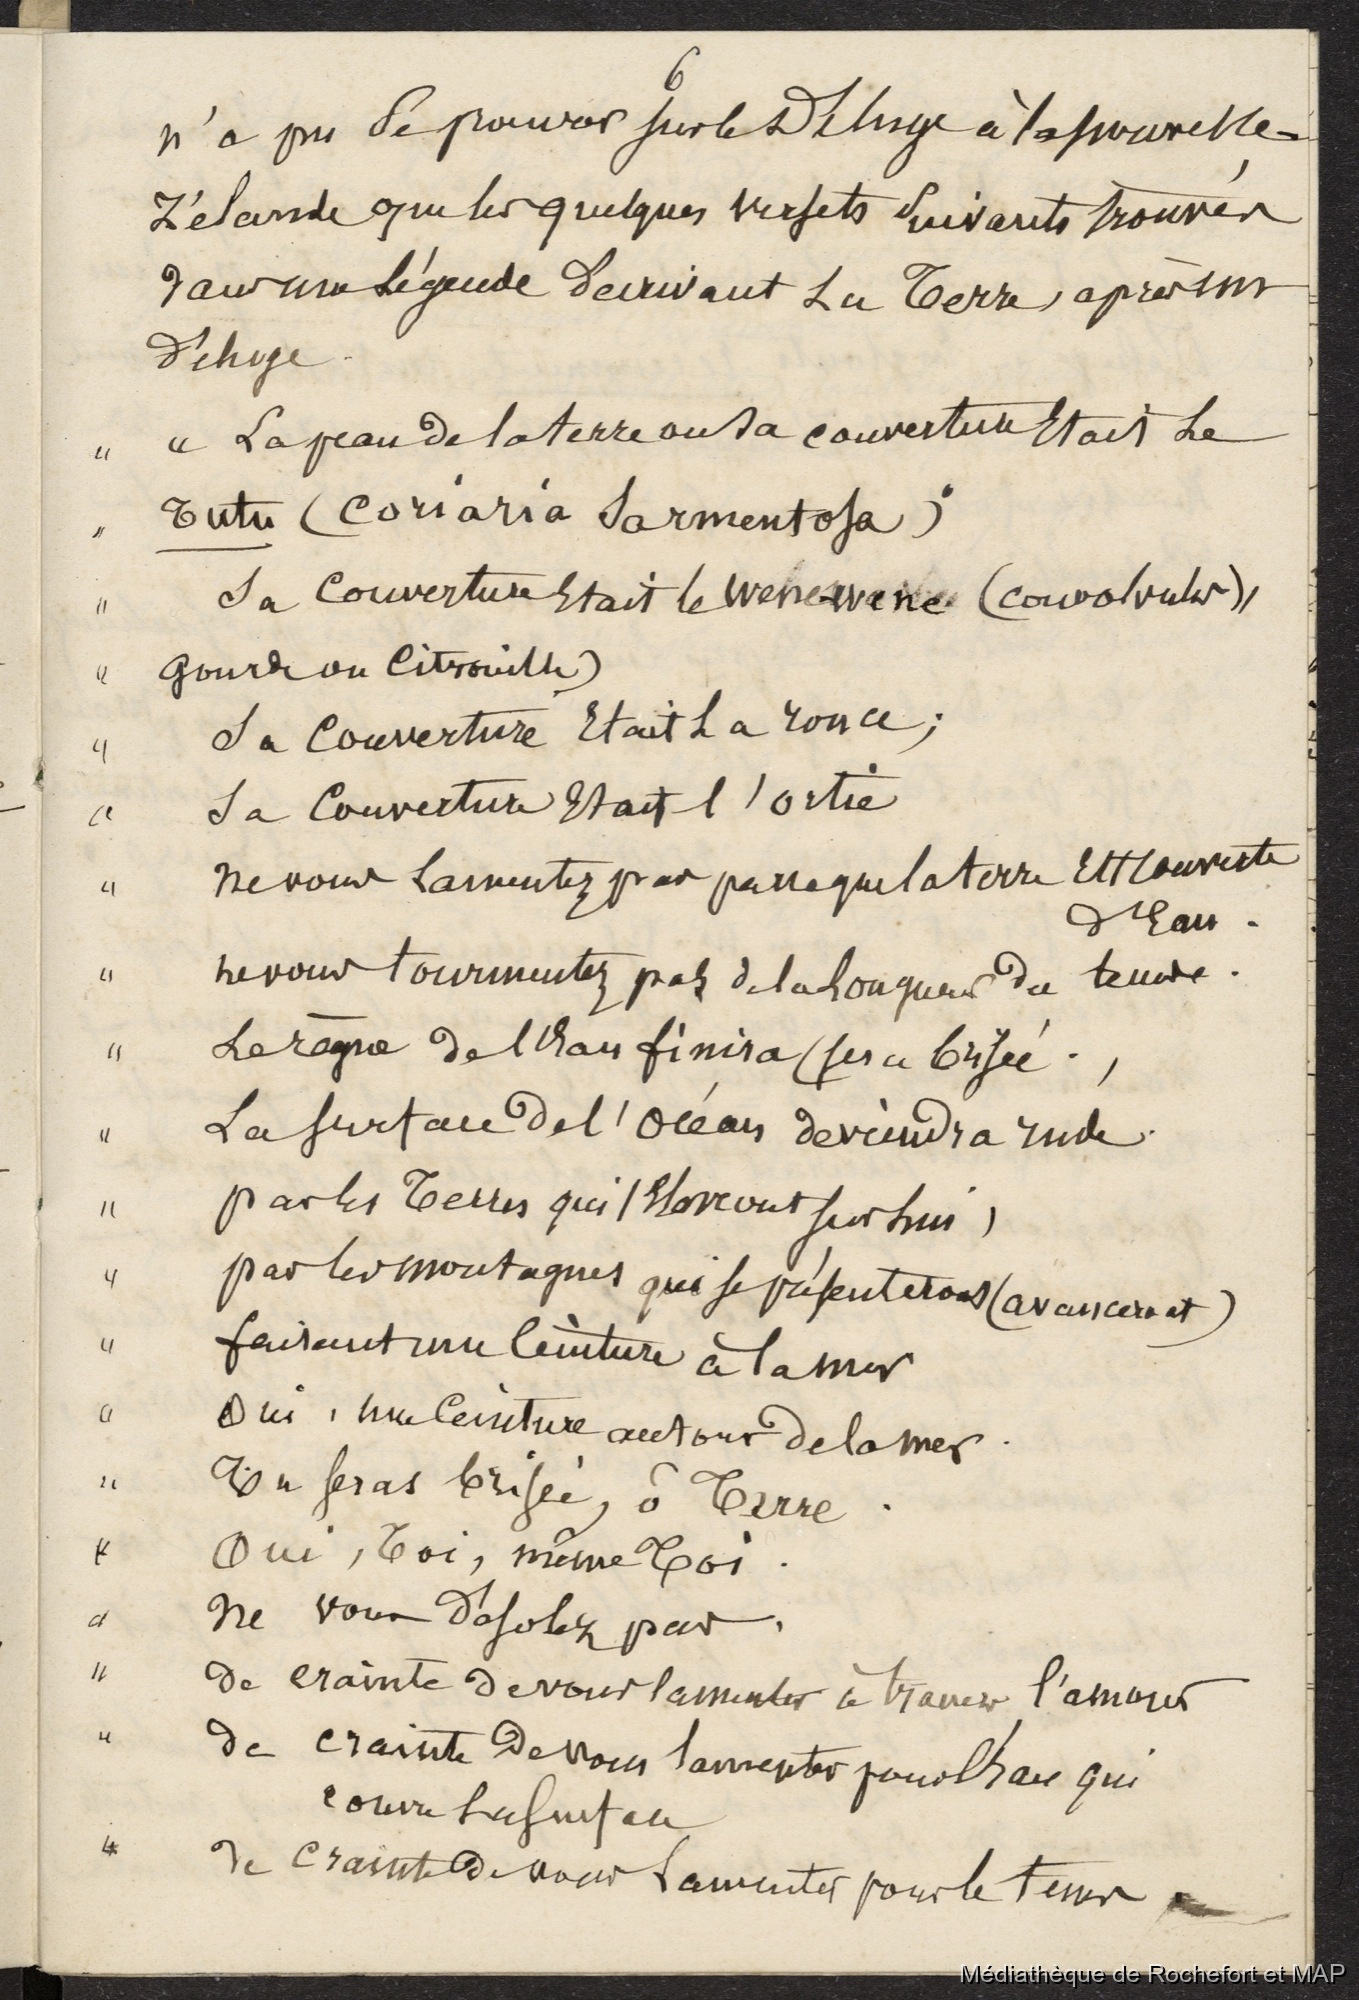 6
n'a pu se prouver sur le Déluge à la Nouvelle-
Zélande que les quelques versets suivants trouvés
dans une Légende décrivant La Terre, après un
Déluge.
" " La peau de la terre ou sa couverture Etait Le
" Tutu (Coriaria Sarmentosa);
" Sa Couverture Etait le Wehe-wehe (convolvulus),
" Gourde ou Citrouille)
" Sa Couverture Etait La ronce;
" Sa Couverture Etait l'ortie
" Ne vous Lamentez pas parce que la terre Est Couverte
d'Eau.
" Ne vous tourmentez pas de la Longueur du temps.
" Le règne de l'Eau finira (sera brisé.,
" La surface de l'Océan deviendra rude
" par les Terres qui s'Elèveront sur Lui,
" par les montagnes qui se présenteront (avanceront)
" faisant une Ceinture à la mer
" Oui, une Ceinture autour de la mer.
" Tu seras brisée, ô Terre.
" Oui, Toi, même Toi.
" Ne vous Désolez pas.
" de crainte de vous lamenter à travers l'amour
" de crainte de vous lamenter pour l'Eau qui
couvre La surface
" de Crainte de vous Lamenter pour le temps
Médiathèque de Rochefort et MAP